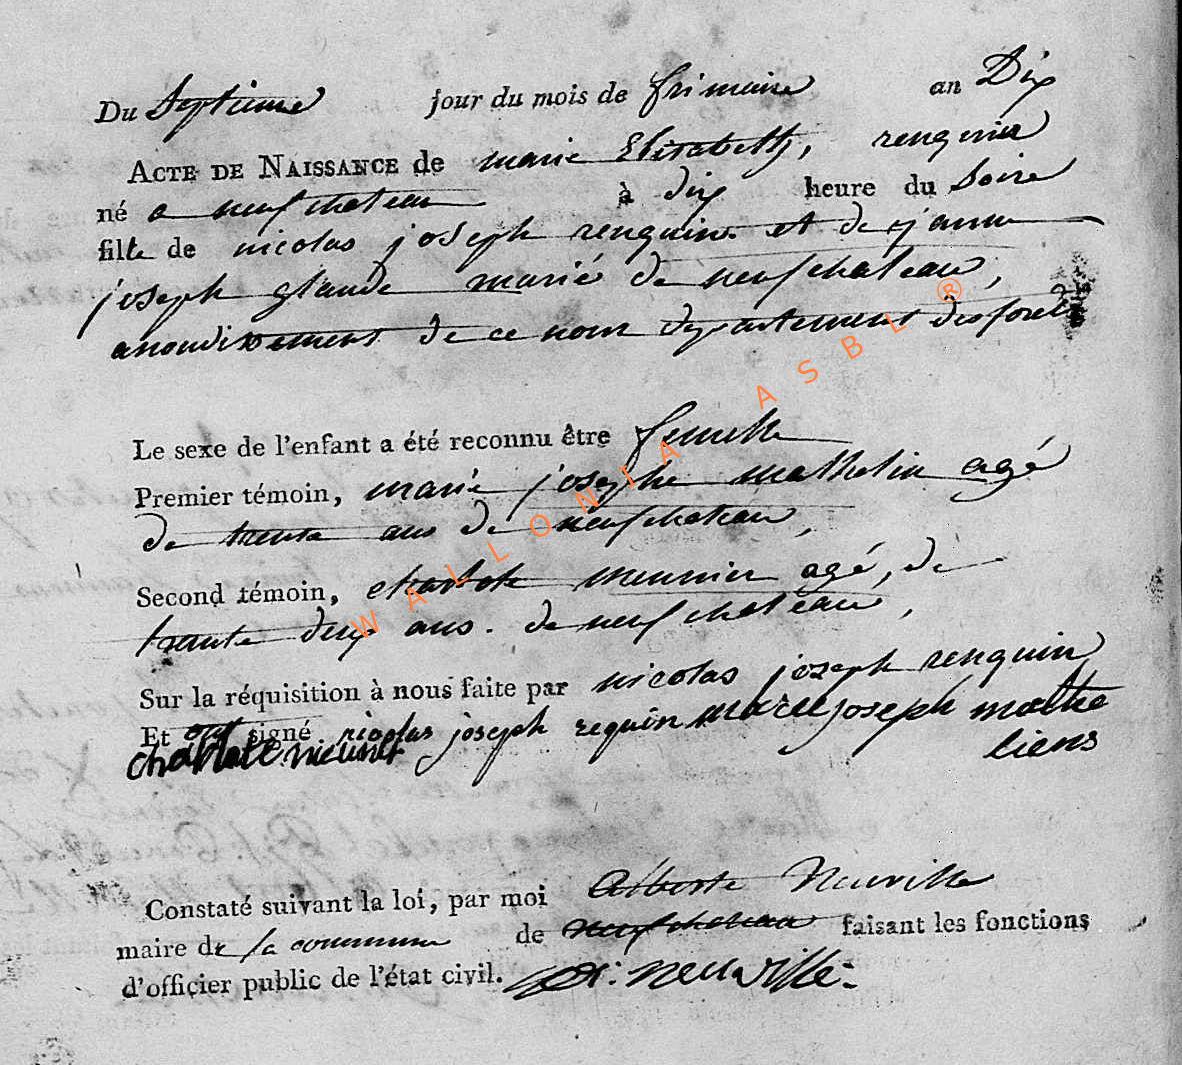 Du Septieme jour du mois de frimaire an Dix
ACTE DE NAISSANCE de marie Elisabeth, renguin
né a neufchateau à dix heure du Soire
fille de nicolas joseph renguin et de janne
joseph glaude marié de neufchateau,
arondissement de ce nom departement des foret
Le sexe de l'enfant a été reconnu être femelle
Premier témoin, marie josephe mathelin agé
de trente ans de neufchateau,
Second témoin, charlote meunier agé, de
trante deux ans. de neufchateau,
Sur la réquisition à nous faite par nicolas joseph renguin
Et ont signé nicolas joseph requin marie joseph mathe
charlote meunier liens
Constaté suivant la loi, par moi Alberte Neuville
maire de la commune de neufchateau faisant les fonctions
d'officier public de l'état civil. neuville
WALLONIA ASBL ®